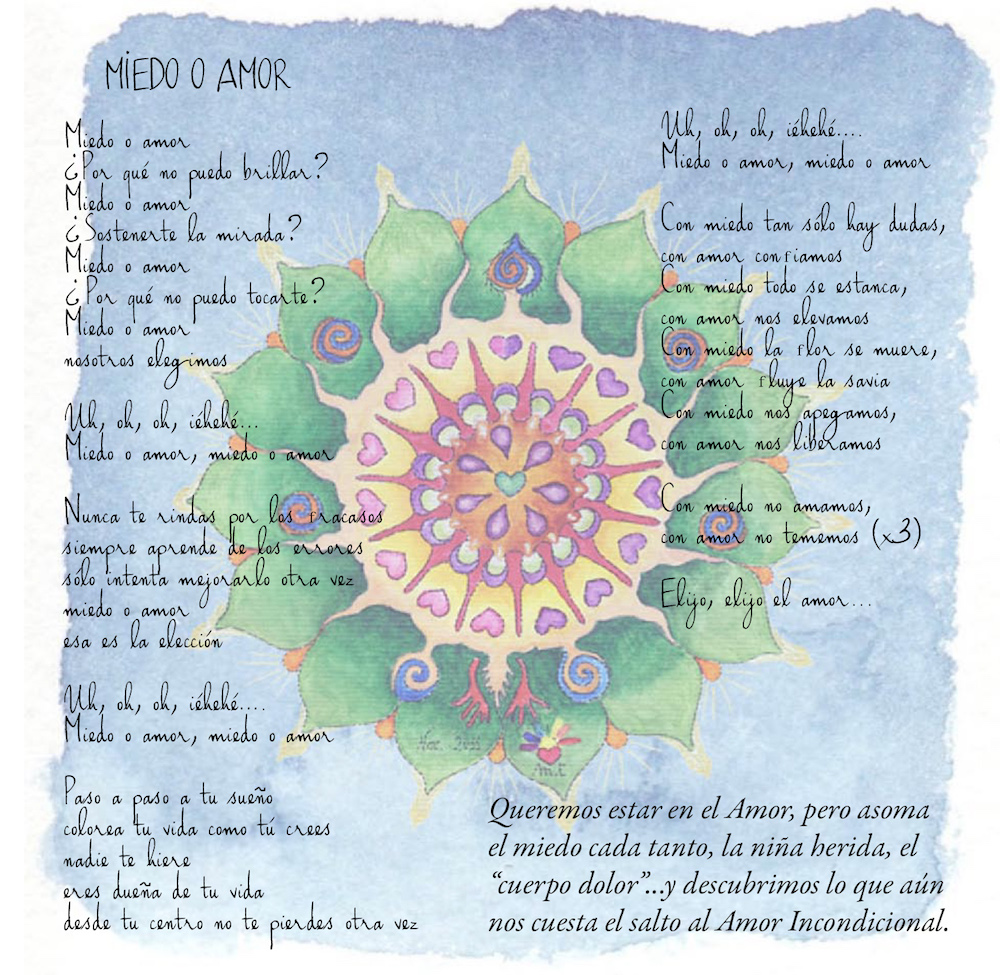 MIEDO O AMOR
Miedo o amor
¿Por qué no puedo brillar?
Miedo o amor
¿Sostenerte la mirada?
Miedo o amor
¿Por qué no puedo tocarte?
Miedo o amor
nosotros elegimos
Uh, oh, oh, iéhehé...
Miedo o amor, miedo o amor
Nunca te rindas por los fracasos
siempre aprende de los errores
sólo intenta mejorarlo otra vez
miedo o amor
esa es la elección
Uh, oh, oh, iéhehé....
Miedo o amor, miedo o amor
Paso a paso a tu sueño
colorea tu vida como tú crees
nadie te hiere
eres dueña de tu vida
desde tu centro no te pierdes otra vez
Uh, oh, oh, iéhehé....
Miedo o amor, miedo o amor
Con miedo tan sólo hay dudas,
con amor confiamos
Con miedo todo se estanca,
con amor nos elevamos
Con miedo la flor se muere,
con amor fluye la savia
Con miedo nos apegamos,
con amor nos liberamos
Con miedo no amamos,
con amor no tememos (x3)
Elijo, elijo el amor...
Queremos estar en el Amor, pero asoma
el miedo cada tanto, la niña herida, el
“cuerpo dolor”...y descubrimos lo que aún
nos cuesta el salto al Amor Incondicional.